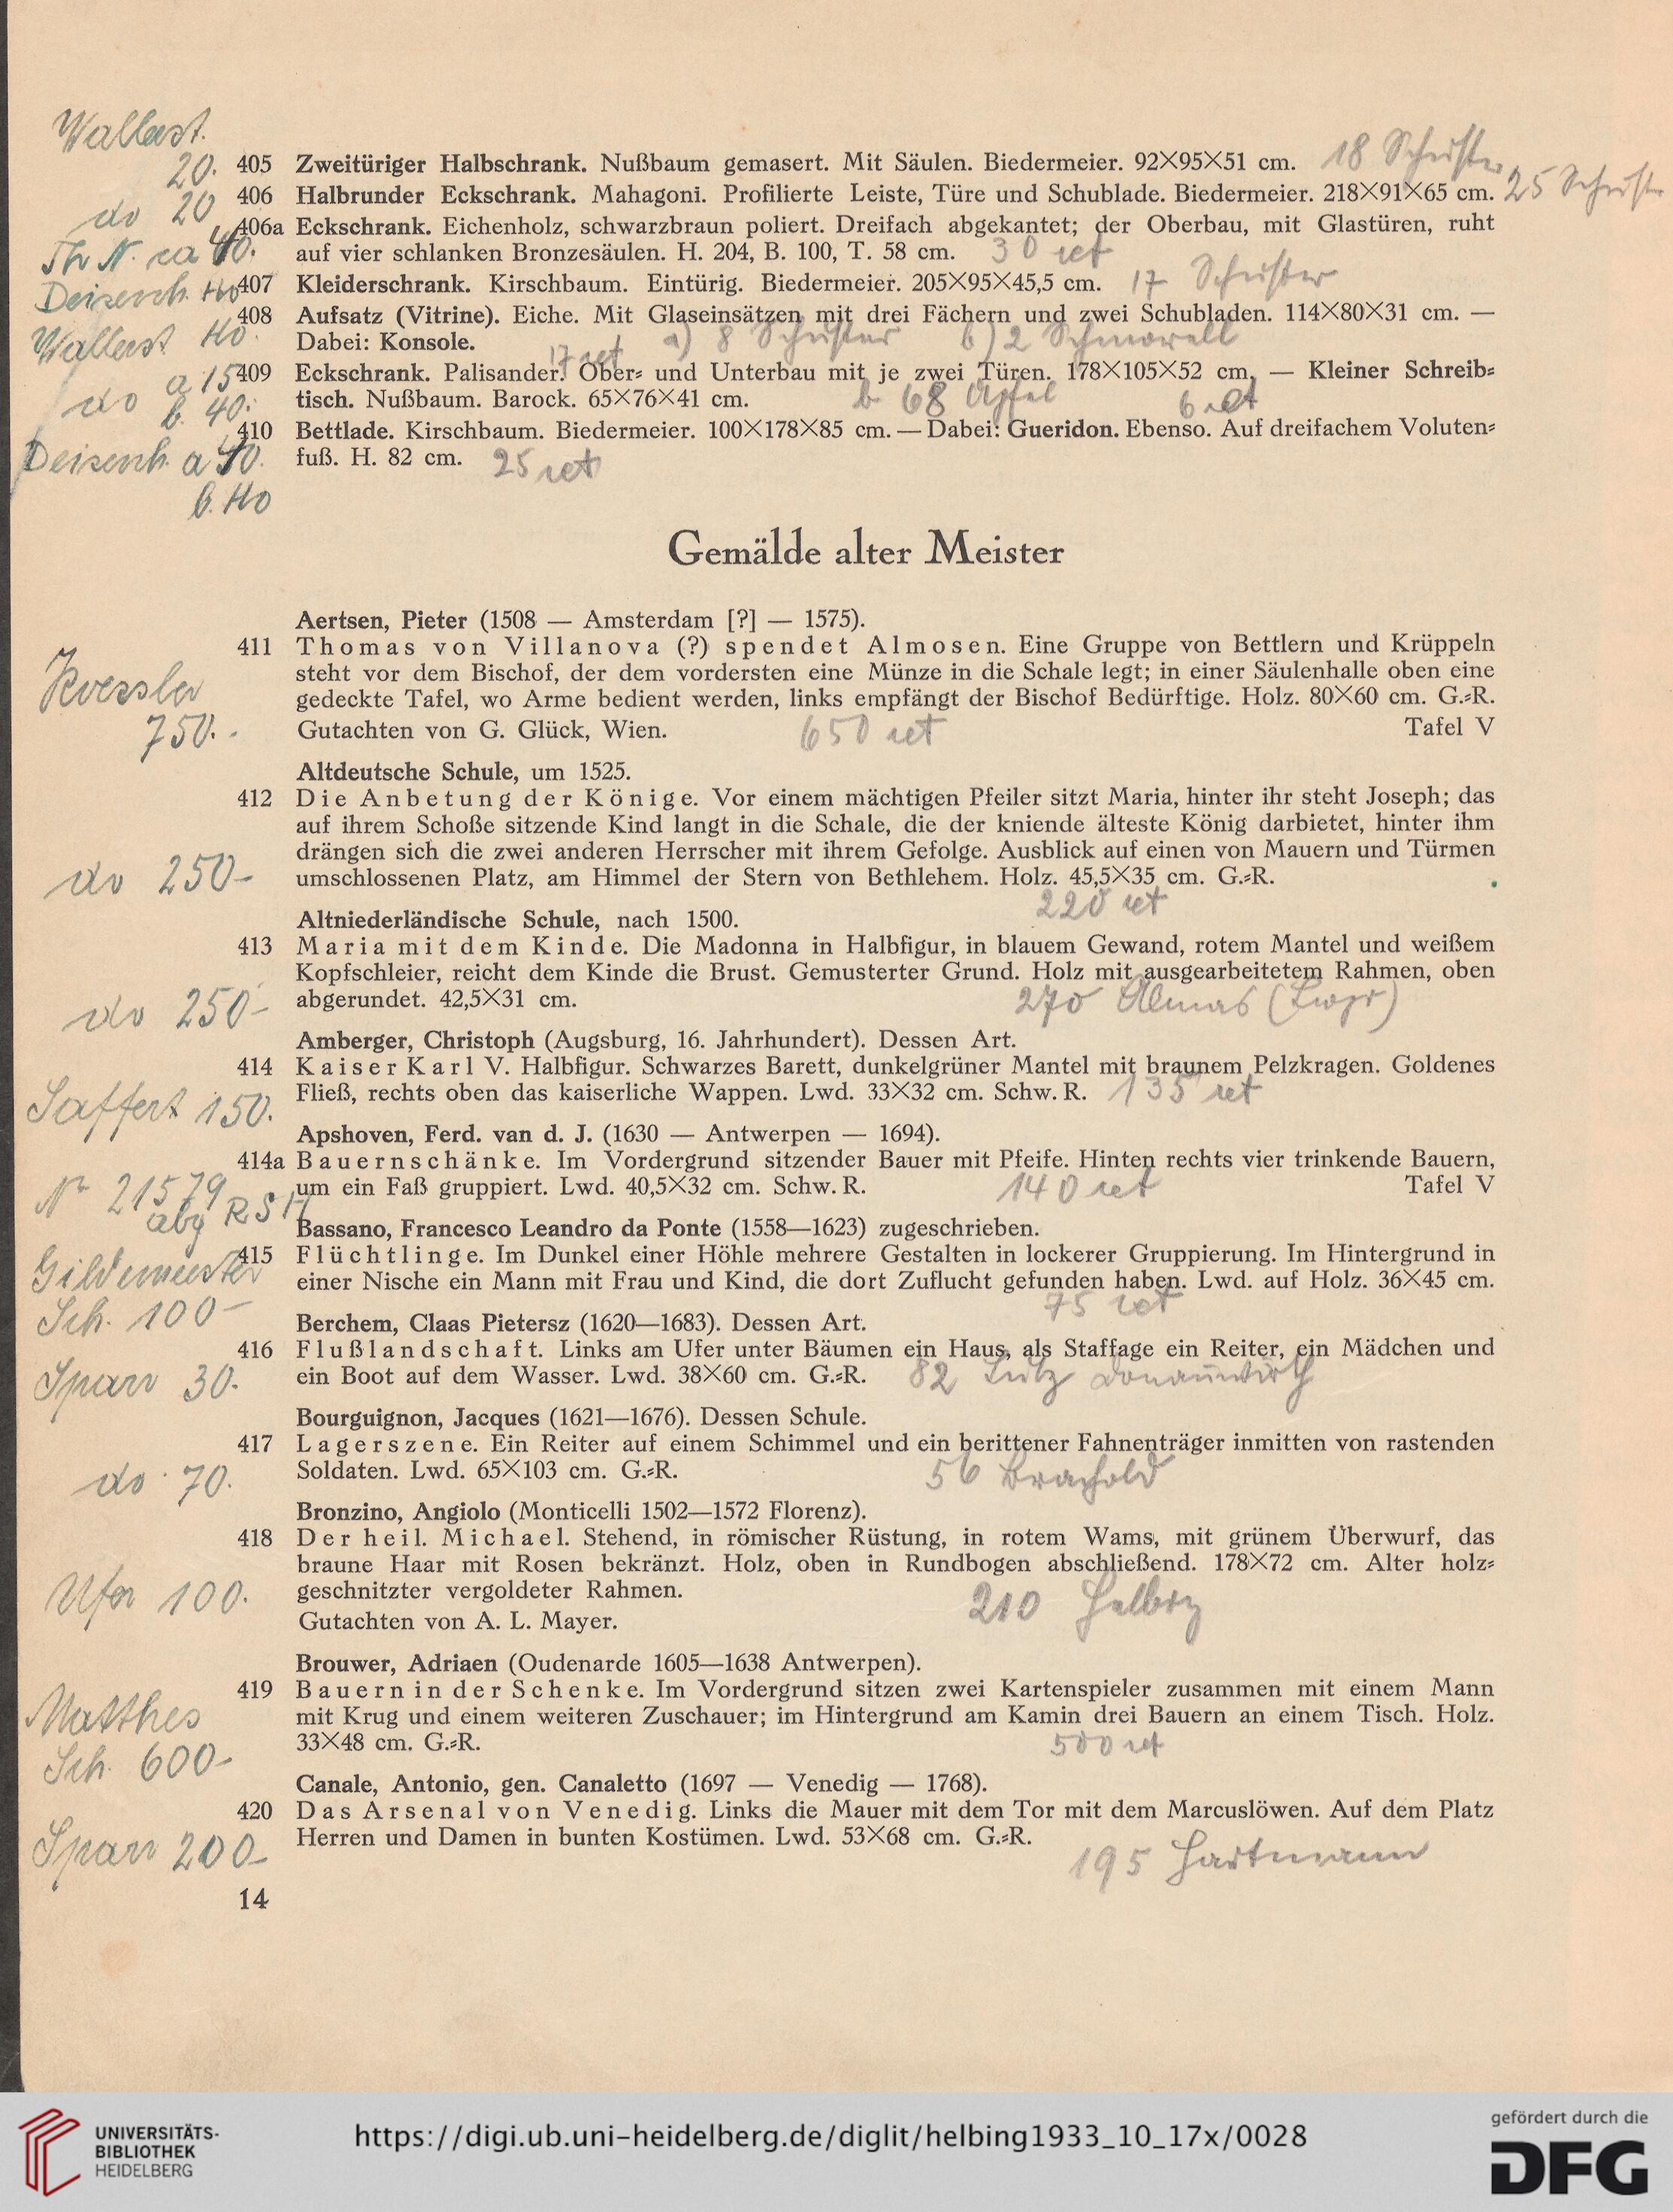 Wallerst.
20. 405 Zweitüriger Halbschrank. Nußbaum gemasert. Mit Säulen. Biedermeier. 92×95×51 cm. 18 Schuster
do 20 406 Halbrunder Eckschrank. Mahagoni. Profilierte Leiste, Türe und Schublade. Biedermeier. 218×91×65 cm. 25 Schuster
406a Eckschrank. Eichenholz, schwarzbraun poliert. Dreifach abgekantet; der Oberbau, mit Glastüren, ruht
auf vier schlanken Bronzesäulen. H. 204, B. 100, T. 58 cm. 30 ret
407 Kleiderschrank. Kirschbaum. Eintürig. Biedermeier. 205×95×45,5 cm. 17 Schuster
Wallerst 408 Aufsatz (Vitrine). Eiche. Mit Glaseinsätzen mit drei Fächern und zwei Schubladen. 114×80×31 cm. —
Dabei: Konsole. a) 8 Schuster b) 2 Schmorell
17 ret
do a 15 409 Eckschrank. Palisander. Ober- und Unterbau mit je zwei Türen. 178×105×52 cm. — Kleiner Schreib-
b. 40. tisch. Nußbaum. Barock. 65×76×41 cm. b 68 6 ret
410 Bettlade. Kirschbaum. Biedermeier. 100×178×85 cm. — Dabei: Gueridon. Ebenso. Auf dreifachem Voluten-
fuß. H. 82 cm. 25 ret
Gemälde alter Meister
Aertsen, Pieter (1508 — Amsterdam [?] — 1575).
411 Thomas von Villanova (?) spendet Almosen. Eine Gruppe von Bettlern und Krüppeln
steht vor dem Bischof, der dem vordersten eine Münze in die Schale legt; in einer Säulenhalle oben eine
gedeckte Tafel, wo Arme bedient werden, links empfängt der Bischof Bedürftige. Holz. 80×60 cm. G.-R.
750.- Gutachten von G. Glück, Wien. 650 ret Tafel V
Altdeutsche Schule, um 1525.
412 Die Anbetung der Könige. Vor einem mächtigen Pfeiler sitzt Maria, hinter ihr steht Joseph; das
auf ihrem Schoße sitzende Kind langt in die Schale, die der kniende älteste König darbietet, hinter ihm
drängen sich die zwei anderen Herrscher mit ihrem Gefolge. Ausblick auf einen von Mauern und Türmen
do 250- umschlossenen Platz, am Himmel der Stern von Bethlehem. Holz. 45,5×35 cm. G.-R.
220 ret
Altniederländische Schule, nach 1500.
413 Maria mit dem Kinde. Die Madonna in Halbfigur, in blauem Gewand, rotem Mantel und weißem
Kopfschleier, reicht dem Kinde die Brust. Gemusterter Grund. Holz mit ausgearbeitetem Rahmen, oben
do 250- abgerundet. 42,5×31 cm. 270 Almas
Amberger, Christoph (Augsburg, 16. Jahrhundert). Dessen Art.
414 Kaiser Karl V. Halbfigur. Schwarzes Barett, dunkelgrüner Mantel mit braunem Pelzkragen. Goldenes
Saffert 150. Fließ, rechts oben das kaiserliche Wappen. Lwd. 33×32 cm. Schw. R. 135 ret
Apshoven, Ferd. van d. J. (1630 — Antwerpen — 1694).
414a Bauernschänke. Im Vordergrund sitzender Bauer mit Pfeife. Hinten rechts vier trinkende Bauern,
No 21579 um ein Faß gruppiert. Lwd. 40,5×32 cm. Schw. R. 140 ret Tafel V
Bassano, Francesco Leandro da Ponte (1558—1623) zugeschrieben.
Gildemeister 415 Flüchtlinge. Im Dunkel einer Höhle mehrere Gestalten in lockerer Gruppierung. Im Hintergrund in
einer Nische ein Mann mit Frau und Kind, die dort Zuflucht gefunden haben. Lwd. auf Holz. 36×45 cm.
Sch. 100- 75 ret
Berchem, Claas Pietersz (1620—1683). Dessen Art.
416 Flußlandschaft. Links am Ufer unter Bäumen ein Haus, als Staffage ein Reiter, ein Mädchen und
30. ein Boot auf dem Wasser. Lwd. 38×60 cm. G.-R. 82 Donauwörth
Bourguignon, Jacques (1621—1676). Dessen Schule.
417 Lagerszene. Ein Reiter auf einem Schimmel und ein berittener Fahnenträger inmitten von rastenden
do 70. Soldaten. Lwd. 65×103 cm. G.-R. 56
Bronzino, Angiolo (Monticelli 1502—1572 Florenz).
418 Der heil. Michael. Stehend, in römischer Rüstung, in rotem Wams, mit grünem Überwurf, das
braune Haar mit Rosen bekränzt. Holz, oben in Rundbogen abschließend. 178×72 cm. Alter holz-
100. geschnitzter vergoldeter Rahmen. 210
Gutachten von A. L. Mayer.
Brouwer, Adriaen (Oudenarde 1605—1638 Antwerpen).
Matthes 419 Bauern in der Schenke. Im Vordergrund sitzen zwei Kartenspieler zusammen mit einem Mann
mit Krug und einem weiteren Zuschauer; im Hintergrund am Kamin drei Bauern an einem Tisch. Holz.
Sch. 600- 33×48 cm. G.-R. 500 ret
Canale, Antonio, gen. Canaletto (1697 — Venedig — 1768).
420 Das Arsenal von Venedig. Links die Mauer mit dem Tor mit dem Marcuslöwen. Auf dem Platz
200- Herren und Damen in bunten Kostümen. Lwd. 53×68 cm. G.-R. 195 Hartmann
14
UNIVERSITÄTS-
BIBLIOTHEK
HEIDELBERG
https://digi.ub.uni-heidelberg.de/diglit/helbing1933_10_17x/0028
gefördert durch die
DFG